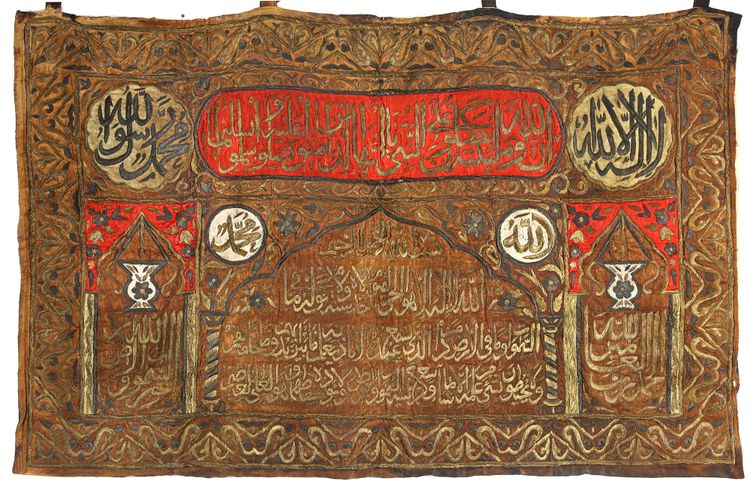 لا اله الا الله
ان الله وملائكته يصلون على النبي يا ايها الذين امنوا صلوا عليه وسلموا تسليما
محمد رسول الله
الله
محمد
بسم الله الرحمن الرحيم
الله لا اله الا هو الحي القيوم لا تأخذه سنة ولا نوم له ما
في السموات وما في الارض من ذا الذي يشفع عنده الا باذنه يعلم ما بين ايديهم وما خلفهم
ولا يحيطون بشيء من علمه الا بما شاء وسع كرسيه السموات والارض ولا يؤده حفظهما وهو العلي العظيم
الله نور السموات والارض